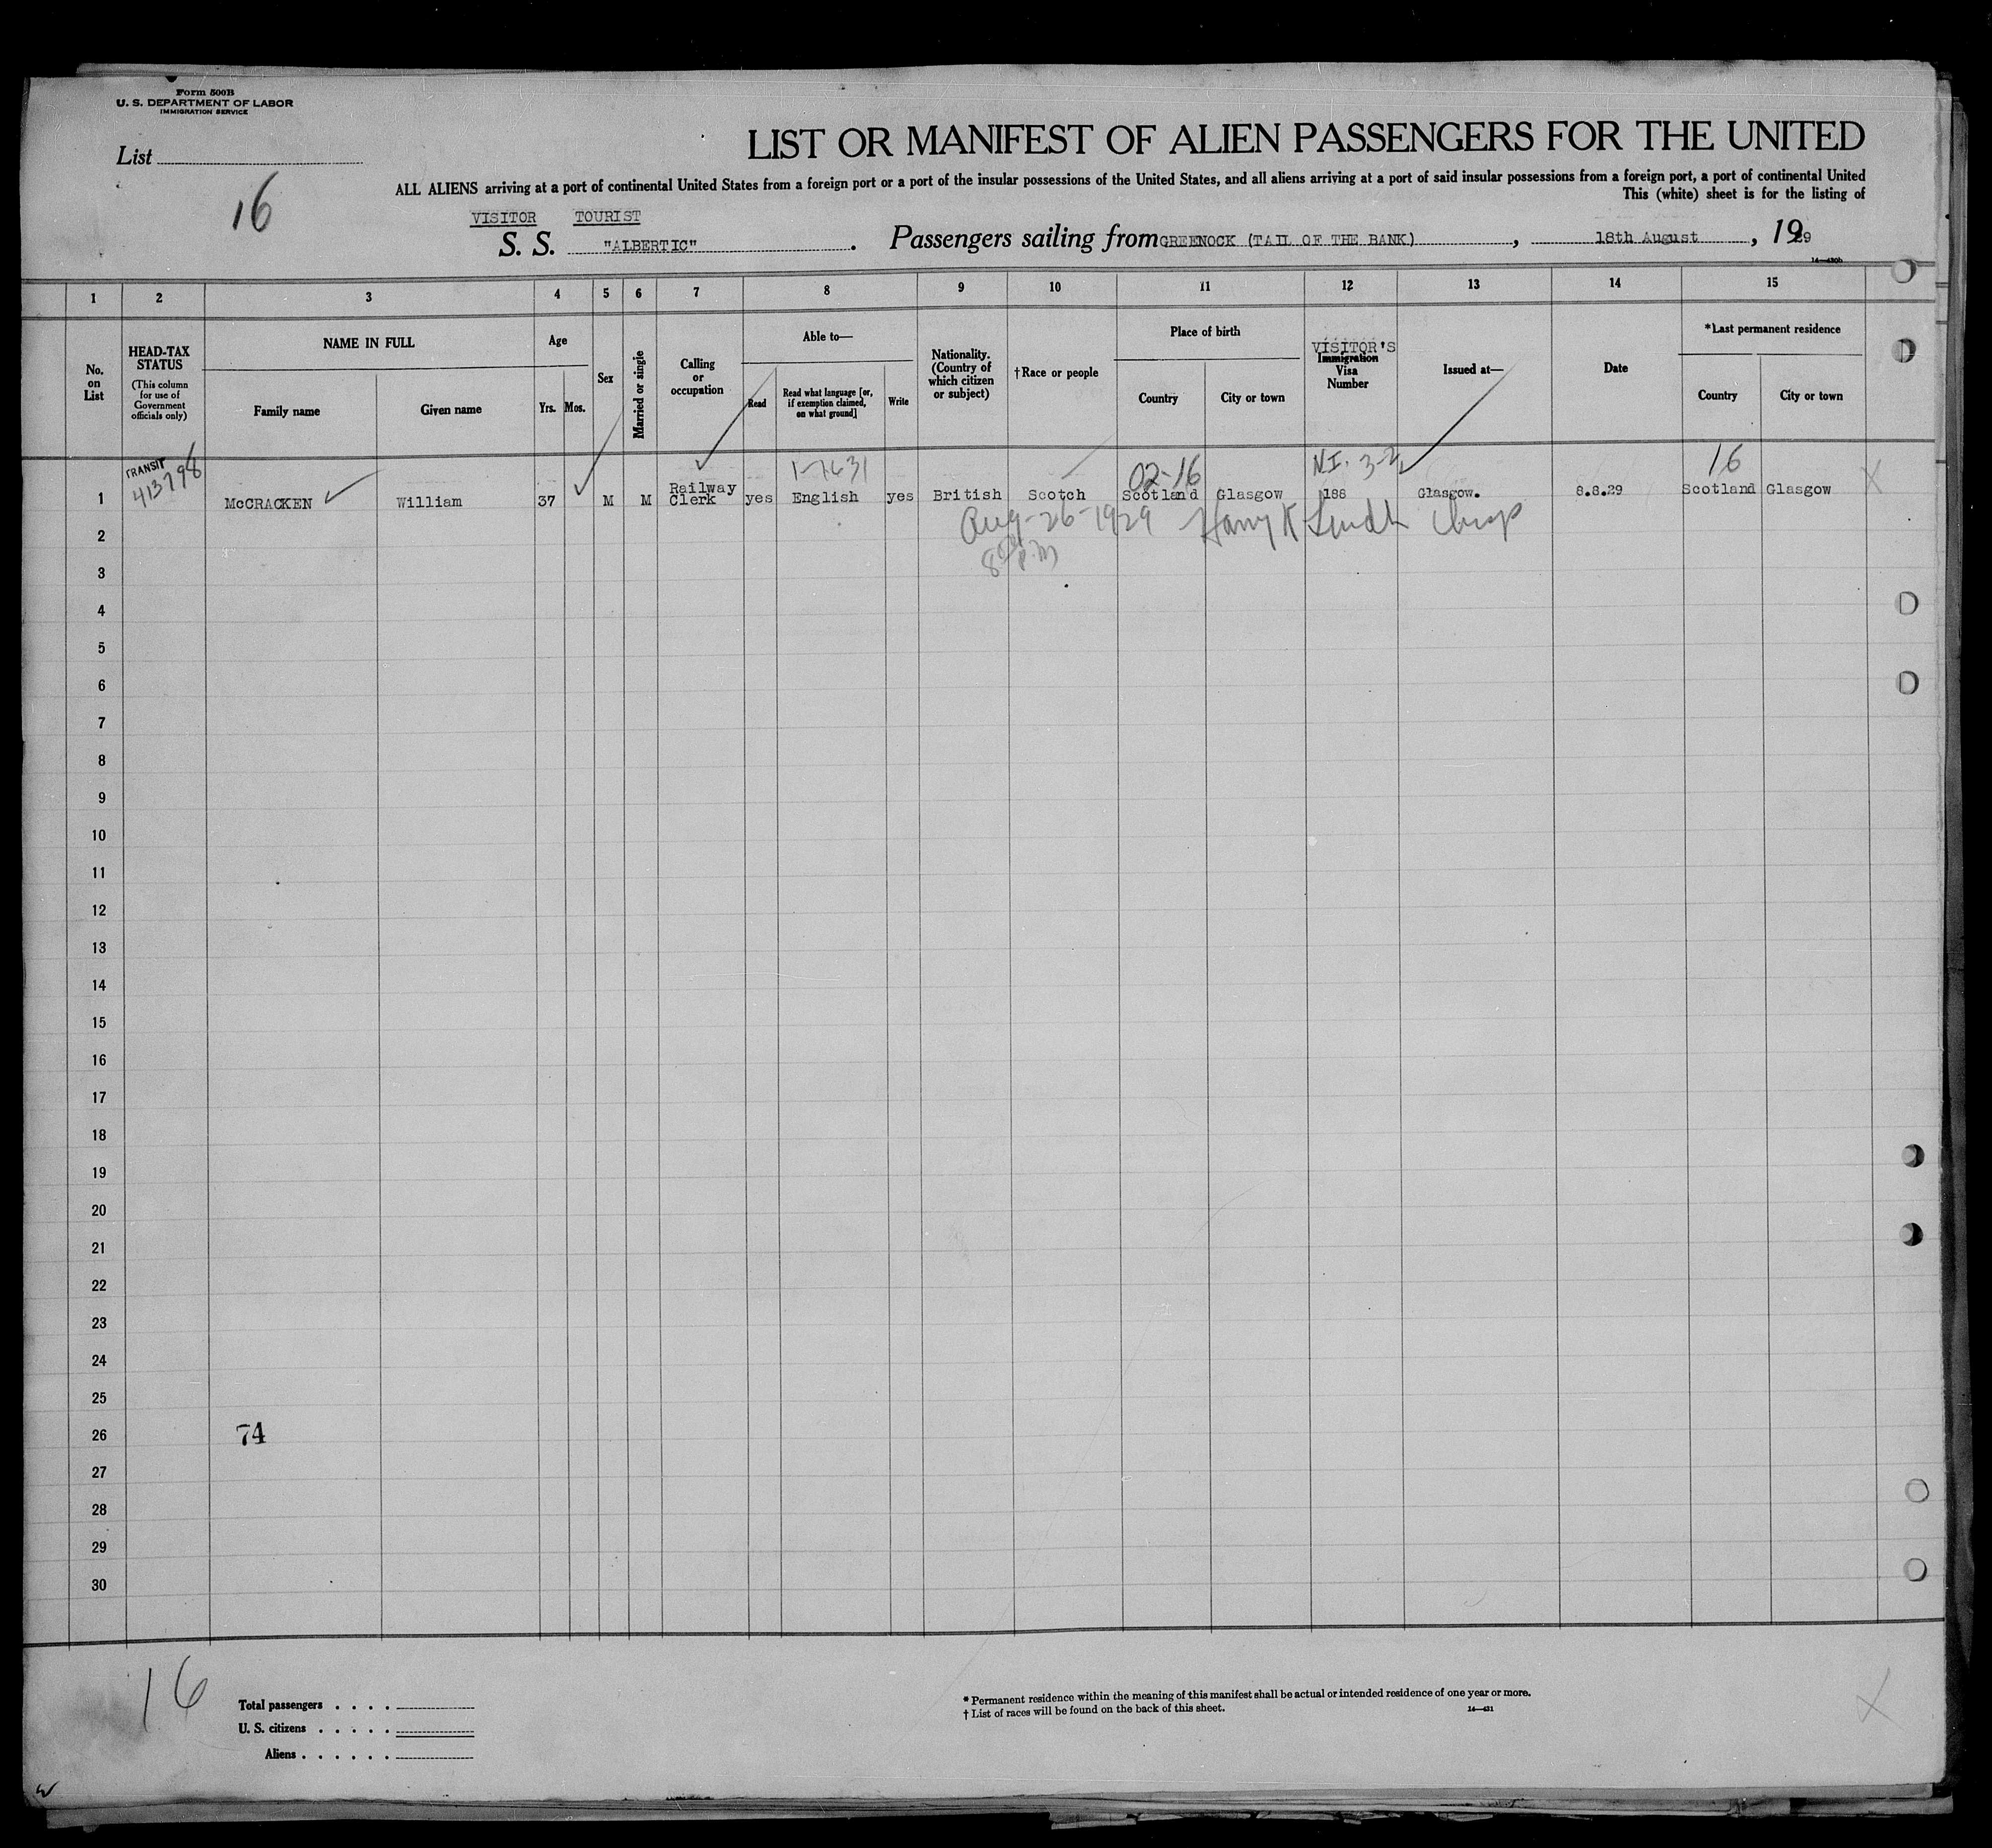 Form 500B
U. S. DEPARTMENT OF LABOR
IMMIGRATION SERVICE
List
16
LIST OR MANIFEST OF ALIEN PASSENGERS FOR THE UNITED
ALL ALIENS arriving at a port of continental United States from a foreign port or a port of the insular possessions of the United States, and all aliens arriving at a port of said insular possessions from a foreign port, a port of continental United
This (white) sheet is for the listing of
VISITOR TOURIST
S. S. "ALBERTIC". Passengers sailing from GREENOCK (TAIL OF THE BANK), 18th August, 1929
14—430b
1 2 3 4 5 6 7 8 9 10 11 12 13 14 15
No. on List
HEAD-TAX STATUS
(This column for use of Government officials only)
NAME IN FULL
Family name Given name
Age
Yrs. Mos.
Sex
Married or single
Calling or occupation
Able to—
Read Read what language [or, if exemption claimed, on what ground] Write
Nationality. (Country of which citizen or subject)
†Race or people
Place of birth
Country City or town
VISITOR'S
Immigration Visa Number
Issued at—
Date
*Last permanent residence
Country City or town
TRANSIT 02-16 N.I. 3-2 16
1 413798 McCRACKEN William 37 M M Railway Clerk yes English yes British Scotch Scotland Glasgow 188 Glasgow. 8.8.29 Scotland Glasgow X
Aug-26-1929 Harry K
2
8 P.M
3
4
5
6
7
8
9
10
11
12
13
14
15
16
17
18
19
20
21
22
23
24
25
26 74
27
28
29
30
16
Total passengers . . . .
U. S. citizens . . . . .
Aliens . . . . . .
* Permanent residence within the meaning of this manifest shall be actual or intended residence of one year or more.
† List of races will be found on the back of this sheet. 14—431
X